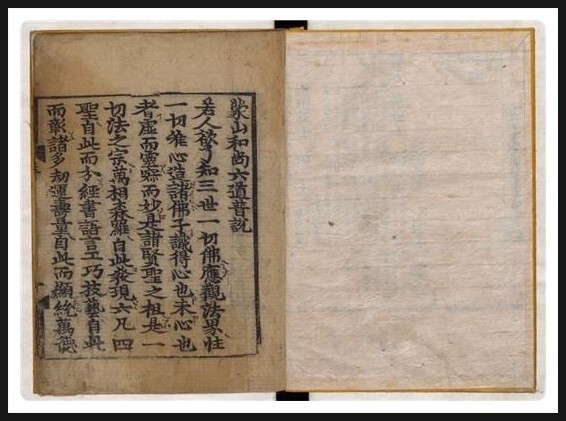 蒙山和尚六道普說
若人欲了知三世一切佛應觀法界性
一切唯心造諸佛子識得心也未心也
者虛而靈寂而妙是諸賢聖之祖是一
切法之宗萬相森羅自此發現六凡四
聖自此而分經書語言工巧技藝自此
而彰諸多劫運壽量自此而顯統萬德